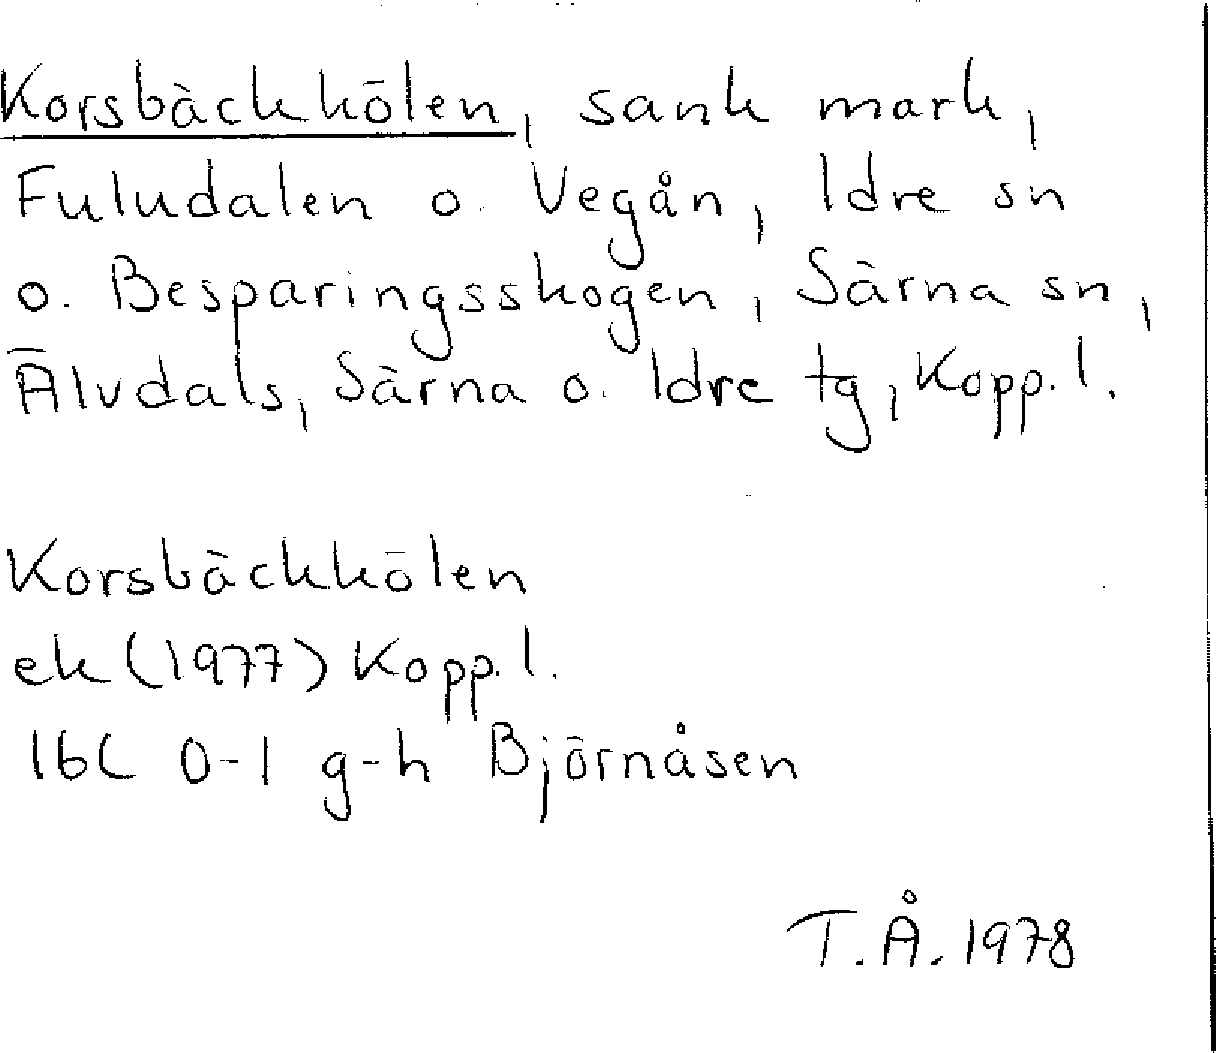 Korsbäckkölen, sank mark,
Fuludalen o. Vegån, Idre sn
o. Besparingsskogen, Särna sn,
Älvdals, Särna o. Idre tg, Kopp. l.
Korsbäckkölen
ek (1977) Kopp. l.
16C 0-1 g-h Björnåsen
T.Å. 1978